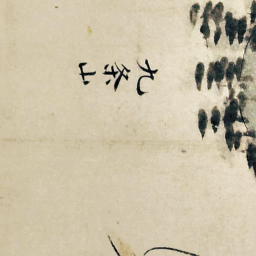 九条山